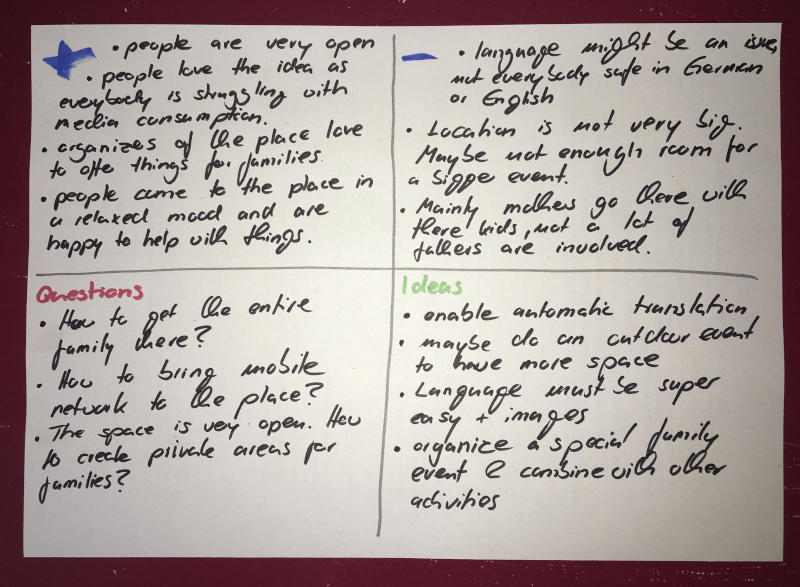 • people are very open
• people love the idea as
everybody is struggling with
media consumption.
• organizers of the place love
to offe things for families
• people come to the place in
a relaxed mood and are
happy to help with things.
• language might be an issue,
not everybody safe in German
or English
• Location is not very big.
Maybe not enough room for
a bigger event.
• Mainly mothers go there with
there kids, not a lot of
fathers are involved.
Questions
• How to get the entire
family there?
• How to bring mobile
network to the place?
• The space is very open. How
to create private areas for
families?
Ideas
• enable automatic translation
• maybe do an outdoor event
to have more space
• Language must be super
easy + images
• organize a special family
event & combine with other
activities